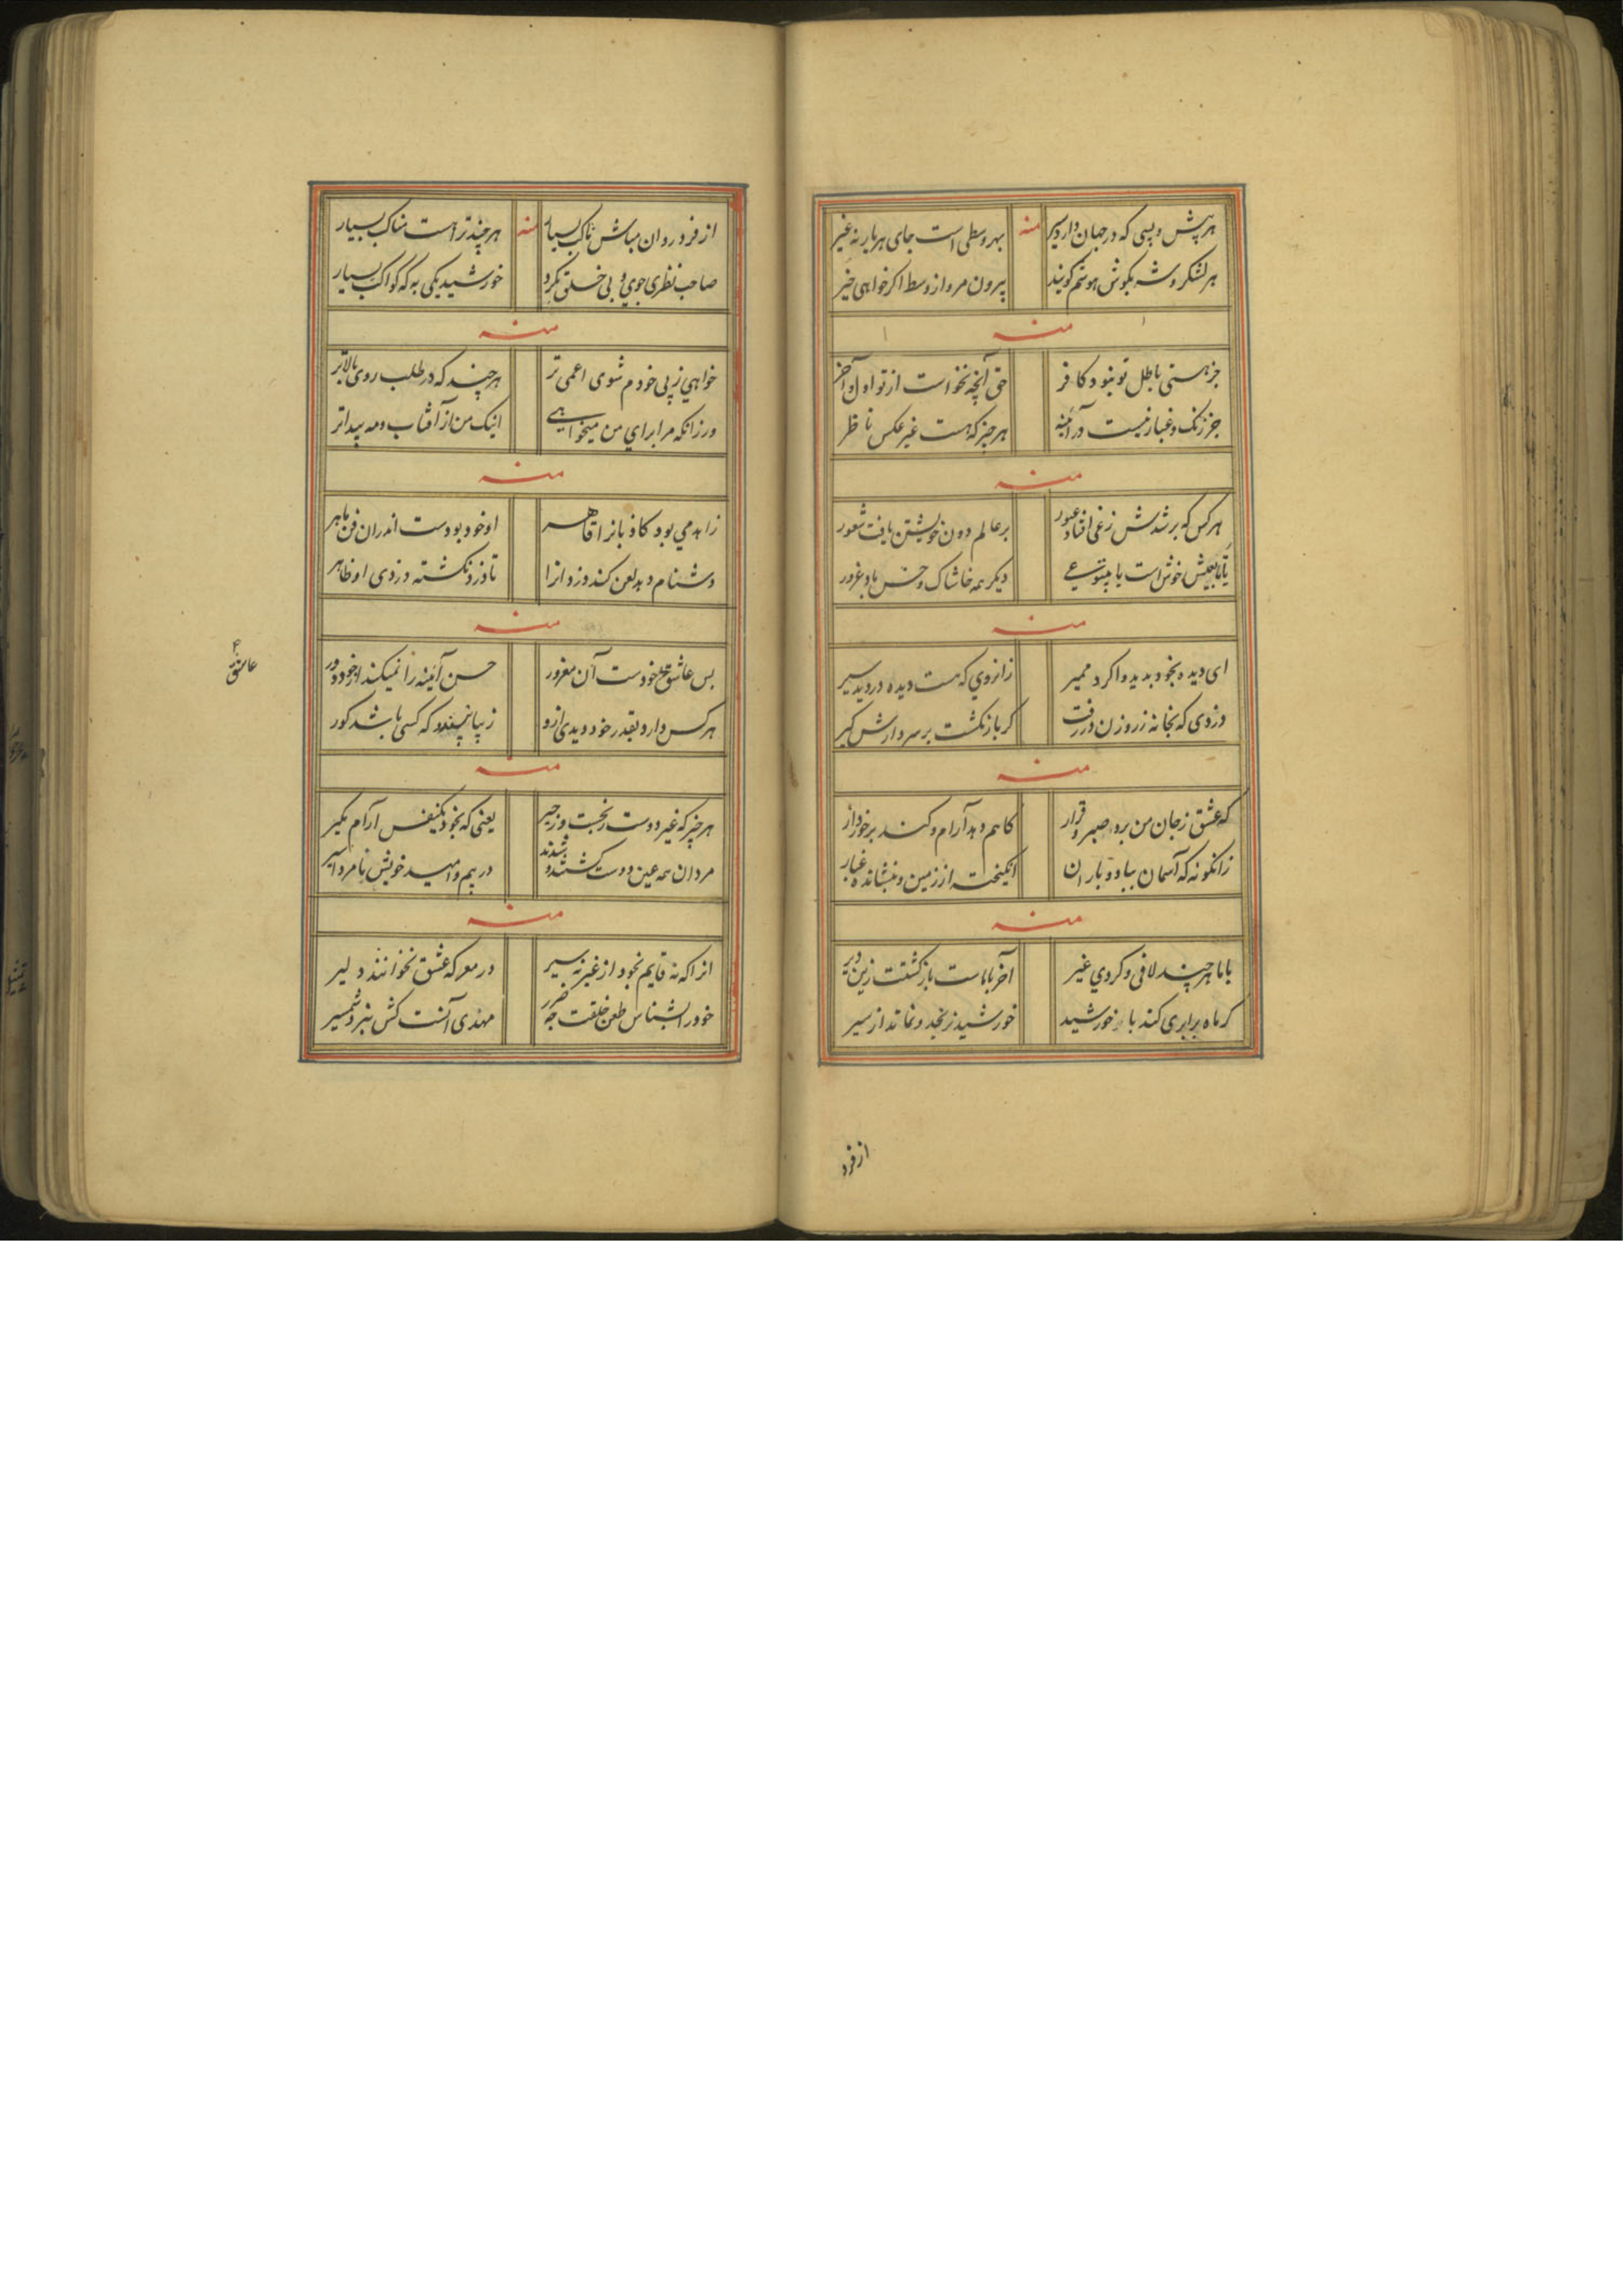 هر پیش و پسی که در جهان دارد سیر منه بهر وسطی است جای هر بار نه غیر
هر لشکر و شه بکوش هوشم کویند بیرون مرو از وسط اکر خواهی خیر
منه
جز هستی باطل تو نبود کافر حق آنچه نخواست از تو اول و آخر
جز زنک و غبار نیست در آئینه هر چیز که هست غیر عکس ناظر
منه
هر کس که بر شدش زغی افتاد عبور بر عالم دون خویشتن یافت شعور
خوش است یا دیکر همه خاشاک و خس باد غرور
منه
ای دیده بخود بدید واکرد ممیر زانروی که هست دیده در دید سیر
دزدی که بخانه ز روزن در رفت کر باز نکشت بر سر دارش کیر
منه
که عشق ز جان من برد صبر و قرار کاهم دهد آرام و کند برخوردار
زانکونه که آسمان بباد و باران انکیخته از زمین و بنشانده غبار
منه
با ما هر چند لافی و کردی غیر آخر با ماست بازکشتت زین دیر
کر ماه برابری کند با خورشید خورشید نرنجد و نماند از سیر
از فرد
از فرد روان مباش ناک بسیار منه هر چند تراست مناک بسیار
صاحب نظری جوی و پی خلق مکرد خورشید یکی به که کواکب بسیار
منه
خواهی ز پی خودم شوی اعمی تر هر چند که در طلب روی بالاتر
ور زانکه مرا برای من میخواهی اینک من از آفتاب و مه پیداتر
منه
زاهد می بود کاذبانرا قاهر او خود بودست اندران فن ماهر
دشنام دهد لعن کند دزدانرا تا دزد نکشته دزدی او ظاهر
منه
بس عاشق خودست آن مغرور حسن آئینه را نمیکند از خود دور
هر کس دارد بقدر خود دیدی ازو زیبا نپسندد که کسی باشد کور
عاشق
منه
هر چیز که غیر دوست رنجست و زحیر یعنی که بخود یکنفس آرام مکیر
مردان همه عین دوست کشتند و شدند در بیم و امید خویش نامرد اسیر
منه
انرا که نه قایم بخود از غیر نه سیر در معرکه عشق نخوانند دلیر
خود را بشناس طعن خلقت چه ضرر مهدی آنست کش نبرد شمشیر